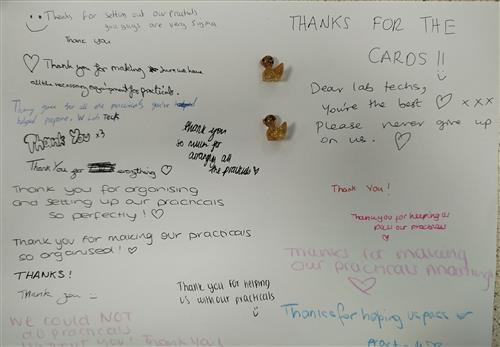 Thanks for setting out our practicals
you guys are very sigma
Thank you
Thank you for making sure we have
all the necessary equipment for practicals.
Thank you for all our practicals you've
helped prepare. W Lab Tech
Thank You x3
Thank You for everything
thank you
so much for
arranging all
the practicals
Thank you for organising
and setting up our practicals
so perfectly!
Thank you for making our practicals
so organised!
THANKS!
Thank you
Thank you for helping
us with our practicals
We could NOT
do practicals
without you! Thank You!
THANKS FOR THE
CARDS !!
Dear lab techs,
You're the best x x x
Please never give up
on us.
Thank You!
Thank you for helping us
pass our practicals
Thanks for making
our practicals amazing
Thanks for helping us pass our